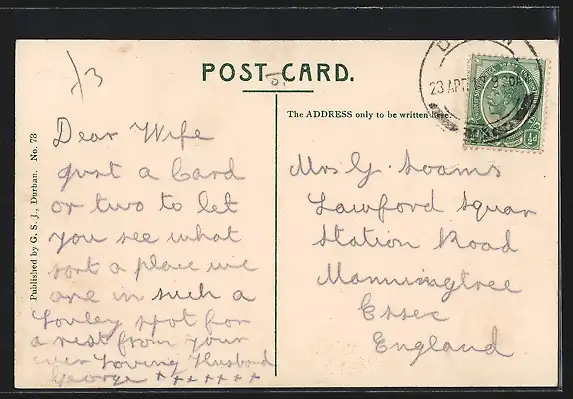 POST CARD.
The ADDRESS only to be written here.
Published by G. S. J., Durban. No. 73
Dear Wife
gust a Card
or two to let
you see what
sort a place we
are in such a
Lovley spot for
a rest from your
ever Loving Husband
George + + + + + + +
Mrs G. Soams
Lawford Squar
Station Road
Manningtree
Essec
England
23 APR